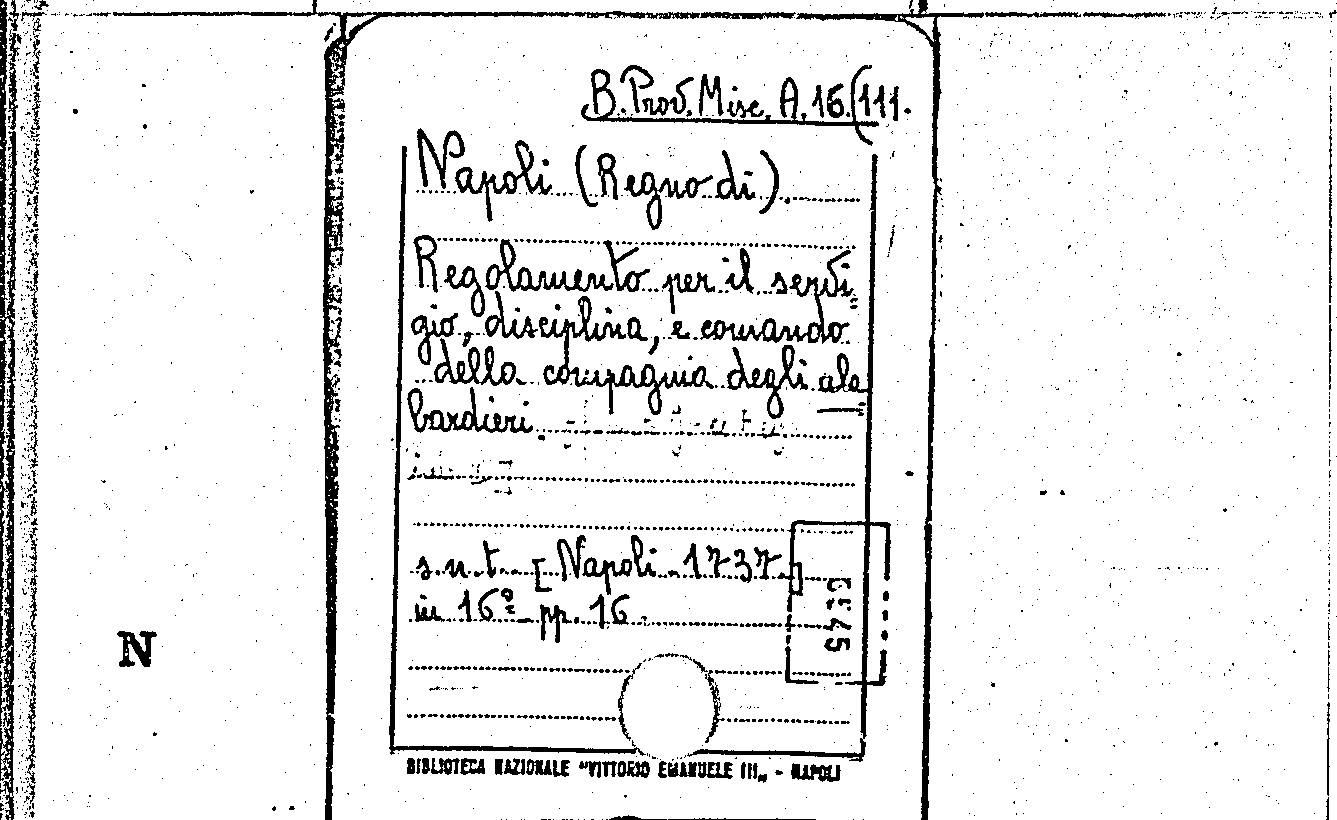 B. Prov. Misc. A. 16.(111.
Napoli (Regno di).
Regolamento per il servi
gio, disciplina, e comando
della compagnia degli ala
bardieri.
s.n.t. [Napoli 1737.]
in 16º pp. 16.
N
BIBLIOTECA NAZIONALE "VITTORIO EMANUELE III„ - NAPOLI